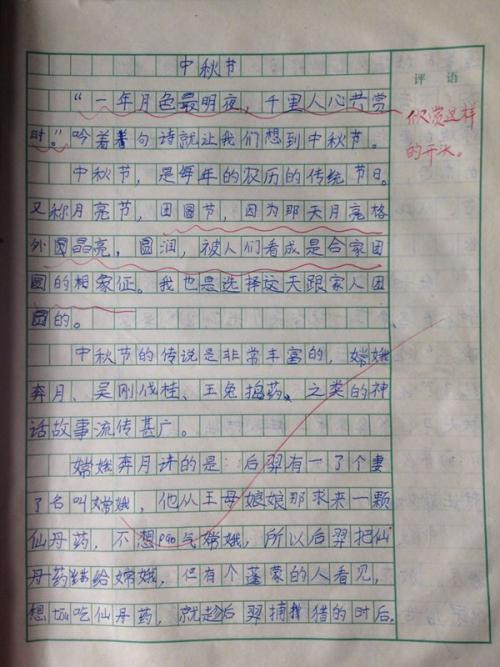 中秋节
评语
“一年月色最明夜，千里人心共赏
时。”吟着着句诗就让我们想到中秋节。
你赏这样
的开头。
中秋节，是每年的农历的传统节日。
又称月亮节，团圆节，因为那天月亮格
外圆晶亮，圆润，被人们看成是合家团
圆的相象征。我也是选择这天跟家人团
圆的。
中秋节的传说是非常丰富的，嫦娥
奔月、吴刚伐桂、玉兔捣药、之类的神
话故事流传甚广。
嫦娥奔月讲的是：后羿有一了个妻
了名叫嫦娥，他从王母娘娘那求来一颗
仙丹药，不想pāo气嫦娥，所以后羿把仙
丹药给嫦娥，但有个蓬蒙的人看见，
想tōu吃仙丹药，就趁后羿捕猎的时后，